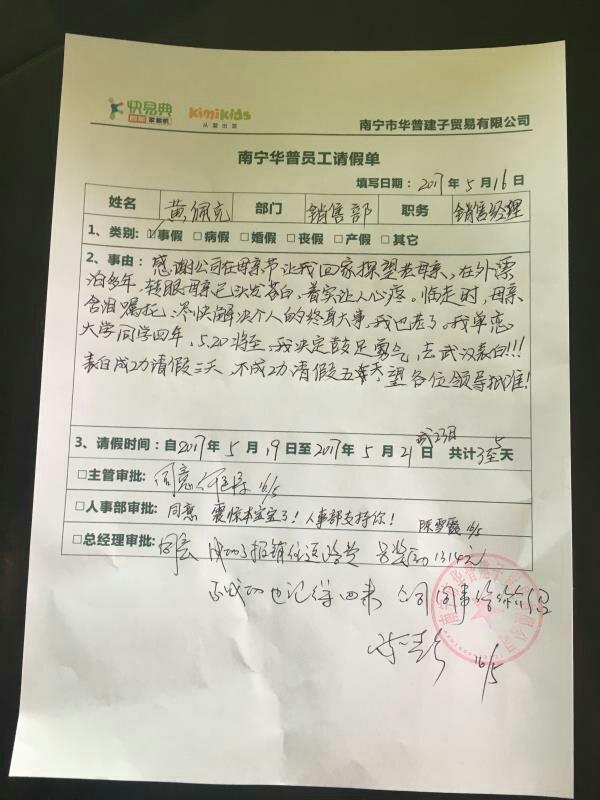 快易典
kimikids
从婴出发
南宁市华普建子贸易有限公司
南宁华普员工请假单
填写日期：2017年5月16日
姓名 黄佩克 部门 销售部 职务 销售经理
1、类别：☑事假 □病假 □婚假 □丧假 □产假 □其它
2、事由：感谢公司在母亲节让我回家探望老母亲，在外漂
泊多年，转眼母亲已头发苍白，着实让人心疼。临走时，母亲
含泪嘱托，尽快解决个人的终身大事，我也老了。我单恋
大学同学四年，5.20将至，我决定鼓足勇气，去武汉表白!!!
表白成功请假三天，不成功请假五天，望各位领导批准！
或23日
3、请假时间：自2017年5月19日至2017年5月21日 共计3至5天
□主管审批：同意 16/5
□人事部审批：同意 震惊本宝宝了！人事部支持你！ 陈雪霞 16/5
□总经理审批：同意 成功了报销往返路费 另奖励1314元
不成功也记得回来 公司同事给你介绍
16/5